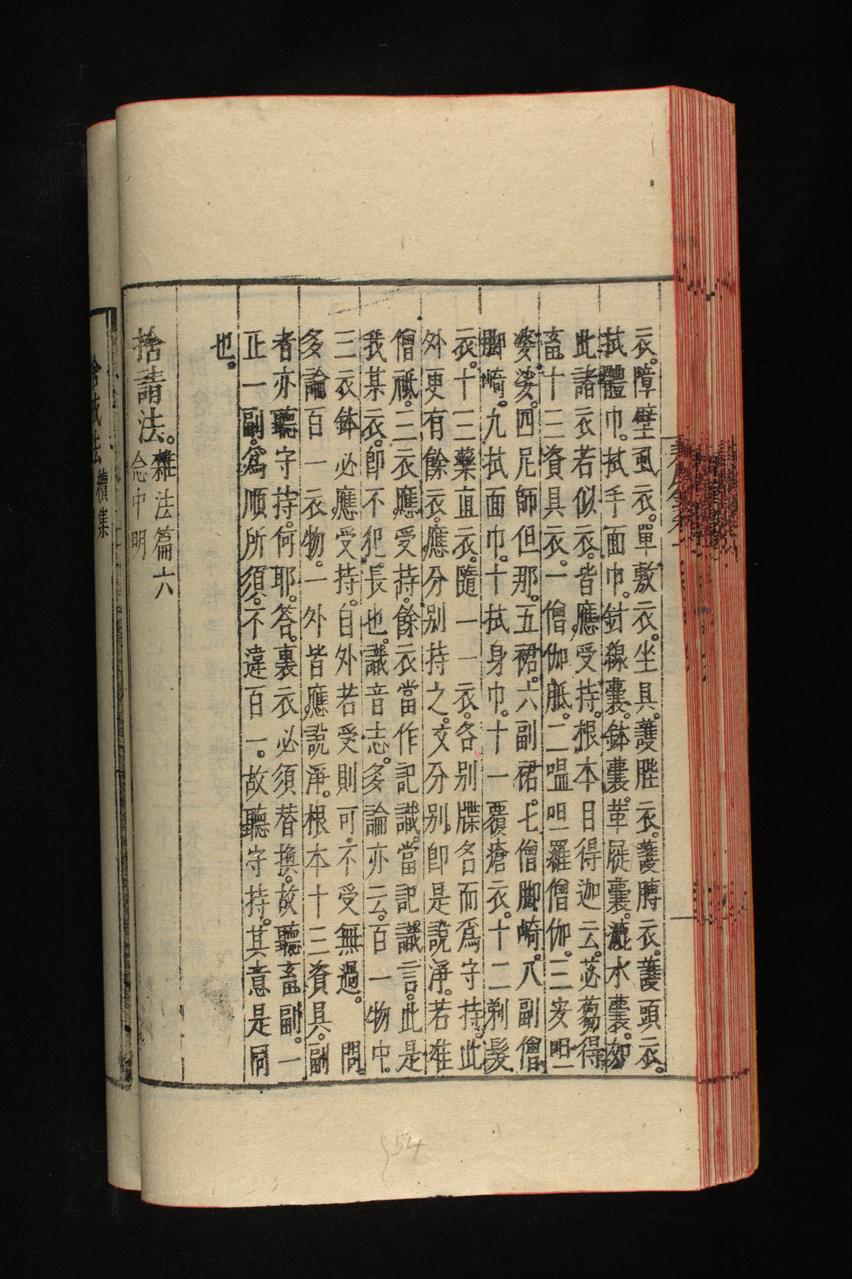 衣。障壁虱衣。單敷衣。坐具。護䏶衣。護膊衣。護頭衣。
拭體巾。拭手面巾。針線囊。鉢囊。革屣囊。漉水囊。如
此諸衣若似衣。皆應受持。根本目得迦云。苾蒭得
畜十三資具衣。一僧伽胝。二嗢呾羅僧伽。三安呾
婆娑。四尼師但那。五裙。六副裙。七僧脚崎。八副僧
脚崎。九拭面巾。十拭身巾。十一覆瘡衣。十二剃髮
衣。十三藥直衣。隨一一衣。各别牒名而爲守持。此
外更有餘衣。應分别持之。文分别。卽是說淨。若准
僧祗。三衣應受持。餘衣當作記識。當記識言。此是
我某衣。卽不犯長也。識音志。多論亦云。百一物中。
三衣鉢必應受持。自外若受則可。不受無過。 問。
多論百一衣物。一外皆應說淨。根本十三資具。副
者亦聽守持。何耶。答。裏衣必須替換。故聽畜副。一
正一副。爲順所須。不違百一。故聽守持。其意是同
也。
捨請法。雜法篇六
念中明
捨戒法續集
54